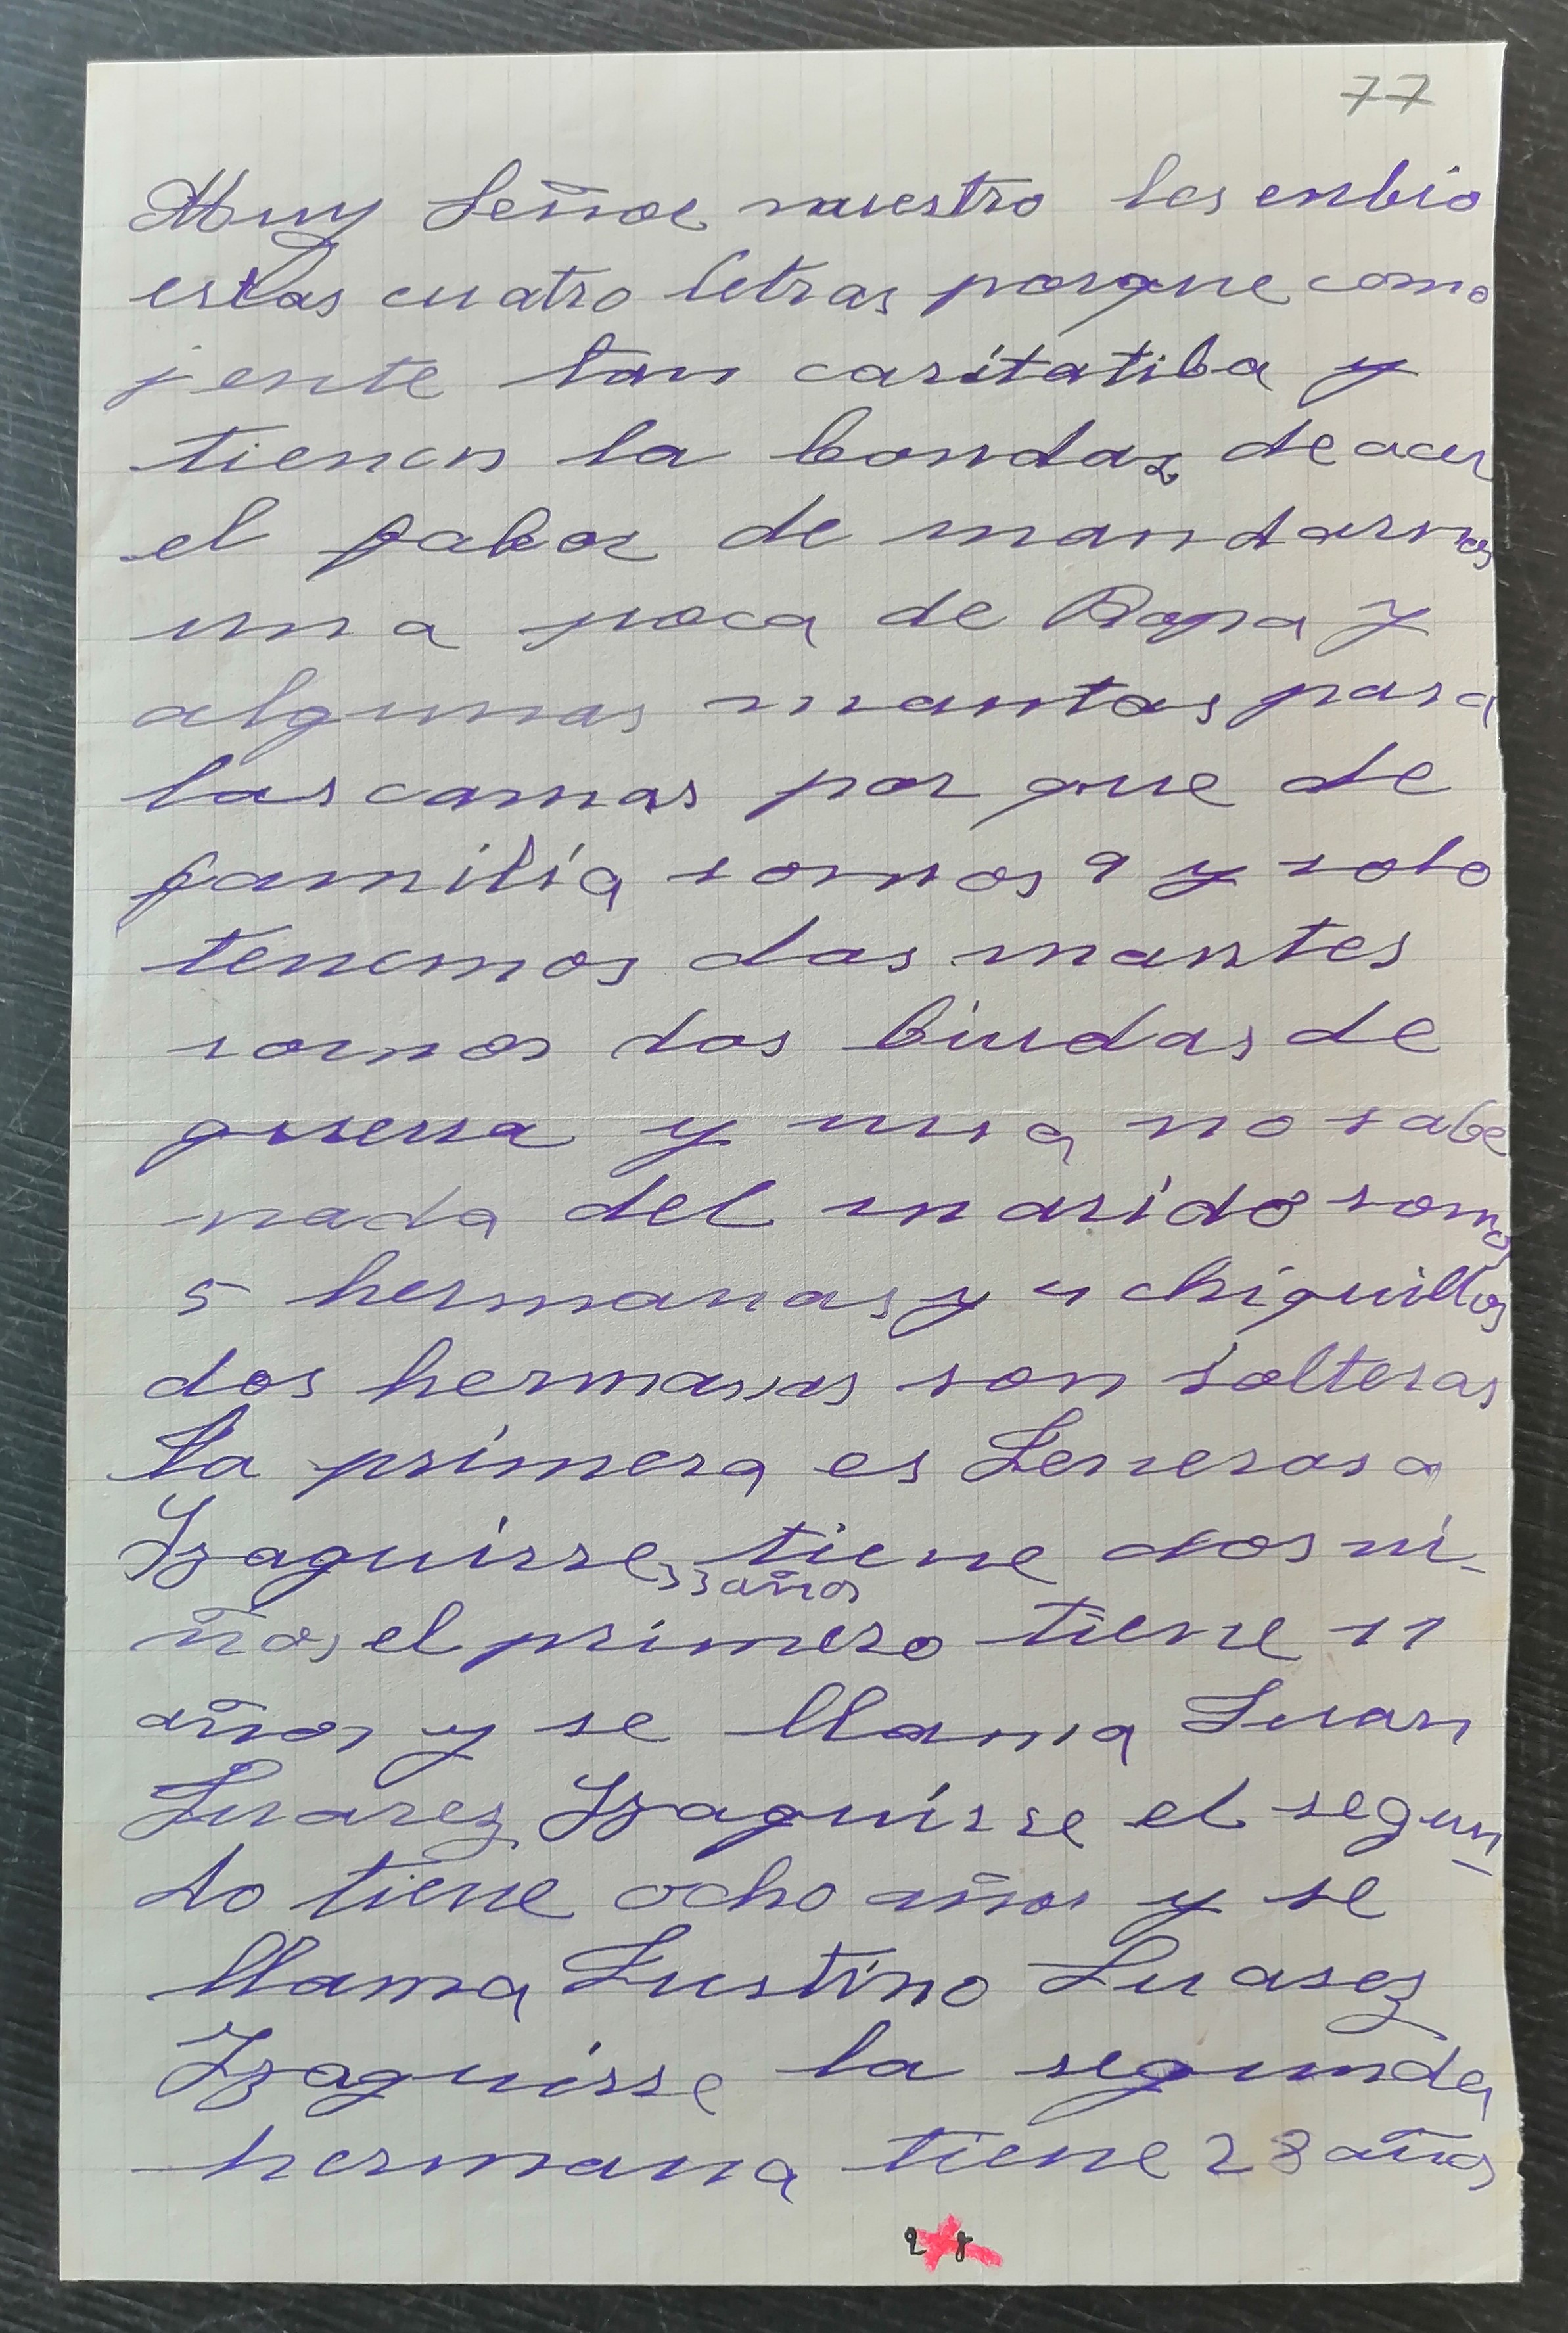 77
Muy Señor nuestro les enbio
estas cuatro letras porque como
jente tan caritatiba y
tienen la bondaz de acer
el fabor de mandarnos
una poca de Ropa y
algunas mantas para
las camas por que de
familia somos 9 y solo
tenemos dos mantes
somos dos biudas de
guerra y una no sabe
nada del marido somos
5 hermanas y 4 chiquillos
dos hermanas son solteras
La primera es Jenerosa
Izaguirre tiene dos ni-
33 años
ños el primero tiene 11
años y se llama Juan
Juarez Izaguirre el segun-
do tiene ocho años y se
llama Justino Juarez
Izaguirre la segunda
hermana tiene 28 años
28